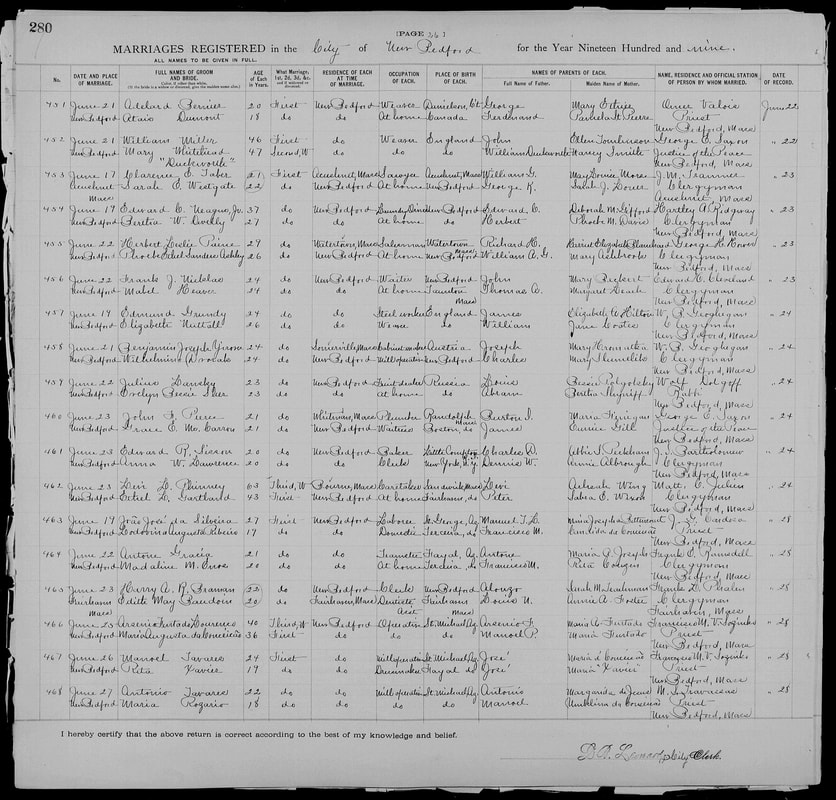 280
[PAGE 26]
MARRIAGES REGISTERED in the City of New Bedford for the Year Nineteen Hundred and nine.
ALL NAMES TO BE GIVEN IN FULL.
No. DATE AND PLACE OF MARRIAGE. FULL NAMES OF GROOM AND BRIDE. AGE of Each in Years. What Marriage; 1st, 2d, 3d, &c. RESIDENCE OF EACH AT TIME OF MARRIAGE. OCCUPATION OF EACH. PLACE OF BIRTH OF EACH. NAMES OF PARENTS OF EACH. Full Name of Father. Maiden Name of Mother. NAME, RESIDENCE AND OFFICIAL STATION OF PERSON BY WHOM MARRIED. DATE OF RECORD.
451 June 21 Bernier 20 First New Bedford Weaver Danielson, Ct George Mary Omer Valois June 22
New Bedford Dumont 18 do do At home Canada Ferdinand St. Pierre Priest
New Bedford, Mass
452 June 21 William Miller 46 First do Weaver England John Ellen Tomlinson George E. Saxon " 22
New Bedford Mary Whitehead 47 Second, W do do do William Duckworth Nancy Smith Justice of the Peace
"Duckworth" New Bedford, Mass
453 June 17 Clarence E. Taber 21 First Acushnet, Mass Sawyer Acushnet, Mass William G. J. M. " 23
Acushnet Sarah E. Westgate 22 do New Bedford At home New Bedford George K. Sarah J. Clergyman
Mass Acushnet, Mass
454 June 17 Edward C. Jr. 37 do New Bedford New Bedford Edward C. Deborah M. Gifford Hartley A. Ridgway " 23
New Bedford W. 27 do do At home do Herbert Phoebe M. Davis Clergyman
New Bedford, Mass
455 June 22 Herbert Leslie Paine 29 do Watertown, Mass Salesman Watertown Richard H. Harriet Elizabeth Blanchard George H. " 23
New Bedford Phoebe Ethel Sanders Ashley 26 do New Bedford At home New Bedford William A. G. Mary Ashbrook Clergyman
New Bedford, Mass
456 June 22 Frank J. Nicholas 24 do New Bedford Waiter New Bedford John Mary Edward C. Cleveland " 23
New Bedford Mabel Heaver 24 do do At home Taunton Thomas A. Margaret Clergyman
Mass New Bedford, Mass
457 June 19 Edmund Grundy 24 do do Steel worker England James Elizabeth A. Hilton W. B. Geoghegan " 24
New Bedford Elizabeth Nuttall 26 do do Weaver do William Jane Clergyman
New Bedford, Mass
458 June 21 Benjamin Joseph 24 do Somerville, Mass Cabinet maker Austria Joseph Mary W. B. Geoghegan " 24
New Bedford Wilhelmina 24 do New Bedford Mill operative New Bedford Charles Mary Clergyman
New Bedford, Mass
459 June 22 Julius Dansky 23 do New Bedford Fruit dealer Russia Louis Bessie Wolf " 24
New Bedford Evelyn Bessie 23 do do At home do Abram Bertha Rabbi
New Bedford, Mass
460 June 23 John F. Pierce 21 do Whitman, Mass Plumber Randolph Burton I. Maria Finnegan George E. Saxon " 24
New Bedford Grace E. McCarron 21 do New Bedford Waitress Boston, do James Gill Justice of the Peace
New Bedford, Mass
461 June 23 Edward R. Sisson 20 do New Bedford Baker Little Compton Charles D. Abbie S. Peckham J. S. Bartholomew " 24
New Bedford Anna W. Lawrence 20 do do Clerk New York, N.Y. Dennis W. Annie Clergyman
New Bedford, Mass
462 June 23 Levi L. Phinney 63 Third, W Bourne, Mass Caretaker Sandwich, Mass Levi Wing Matt. C. Julien " 24
New Bedford Ethel L. Gartland 43 First New Bedford At home Fairhaven, do Peter E. Wixon Clergyman
New Bedford, Mass
463 June 19 João José da Silveira 27 First New Bedford Laborer St. George, Az Manuel T. L. Maria Josepha J. F. Cardoza " 28
New Bedford Augusta Ribeiro 19 do do Domestic Terceira, do Francisco M. Candida da Conceicao Priest
New Bedford, Mass
464 June 22 Antone Gracia 21 do do Teamster Fayal, Az Antone Maria J. Joseph Frank E. Ramsdell " 28
New Bedford Madaline M. 20 do do At home Terceira, do Francisco M. Rita Clergyman
New Bedford, Mass
465 June 23 Harry A. R. Braman 22 do New Bedford Clerk New Bedford Alonzo Sarah M. Frank L. Phalen " 28
Fairhaven Edith May Baudoin 20 do Fairhaven, Mass Dentist's Asst Fairhaven Mass Louis N. Annie A. Foster Clergyman
Mass Fairhaven, Mass
466 June 23 Arsenio Furtado Lourenco 40 Third, W New Bedford Operative St. Michael, Az Arsenio F. Maria A. Furtado Francisco M. V. " 28
New Bedford Maria Augusta da Conceicao 36 First do do do Manoel P. Maria Furtado Priest
New Bedford, Mass
467 June 26 Manoel Tavares 24 First do Mill operative St. Michael, Az José Maria Conceicao Francisco M. V. " 28
New Bedford Rita Xavier 19 do do Dressmaker Fayal do José Maria "Xavier" Priest
New Bedford, Mass
468 June 27 Antonio Tavares 22 do do Mill operative St. Michael, Az Antonio Margarida de Jesus M. S. Travassos " 28
New Bedford Maria Rogario 18 do do do do Manoel Umbilina da Conceicao Priest
New Bedford, Mass
I hereby certify that the above return is correct according to the best of my knowledge and belief.
Leonard, City Clerk.